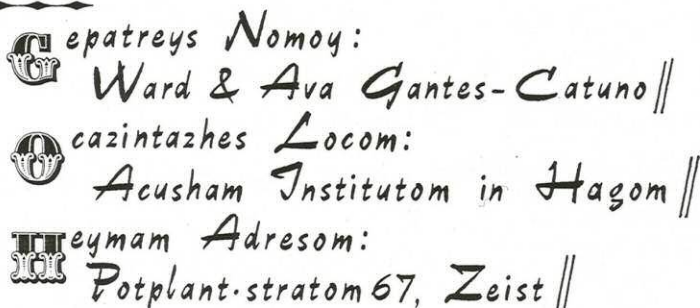 Gepatreys Nomoy:
Ward & Ava Gantes-Catuno ||
Ocazintazhes Locom:
Acusham Institutom in Hagom ||
Heymam Adresom:
Potplant·stratom 67, Zeist ||